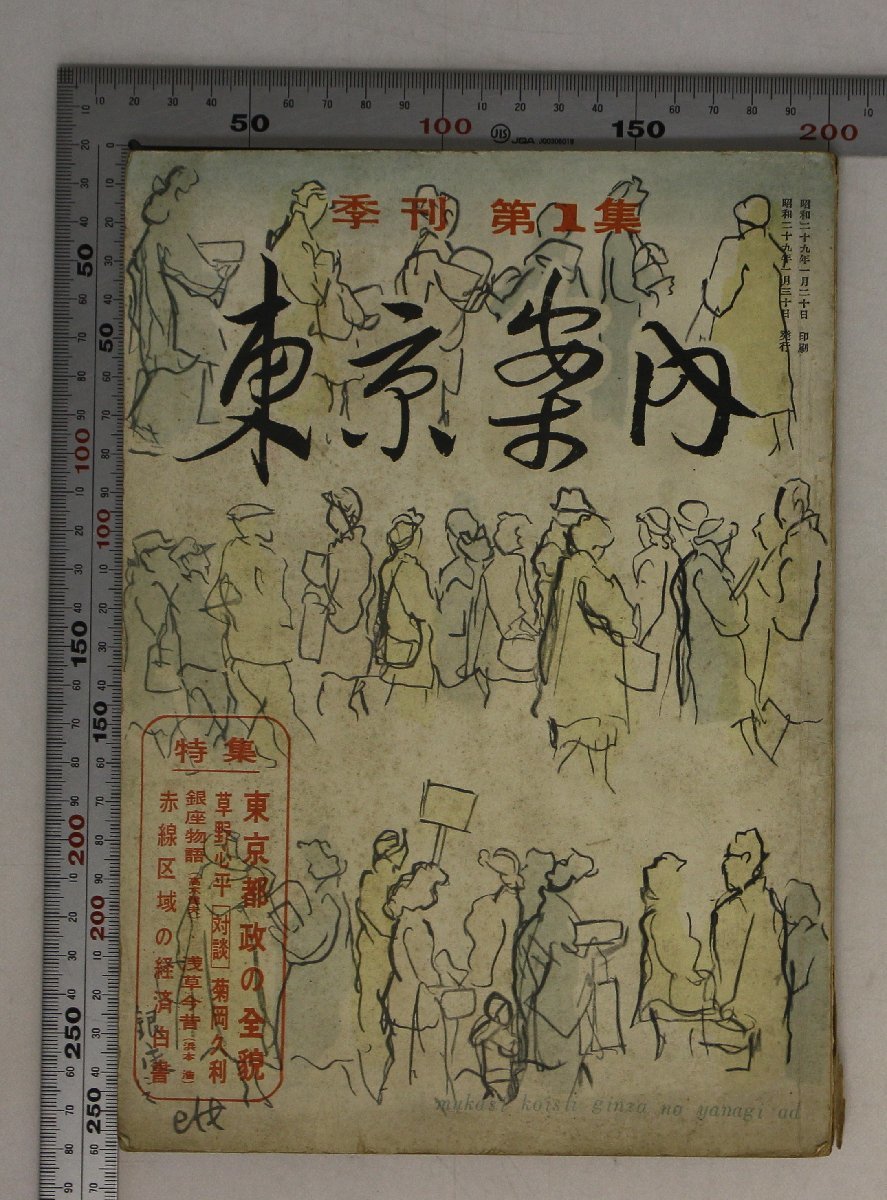 季刊 第1集
東京案内
昭和二十九年一月二十日 印刷
昭和二十九年一月三十日 発行
特集
東京都政の全貌
草野心平［対談］菊岡久利
銀座物語 浅草今昔（浜本浩）
赤線区域の経済白書
mukasi koisii ginza no yanagi ad
JIS JQA JQ0306019